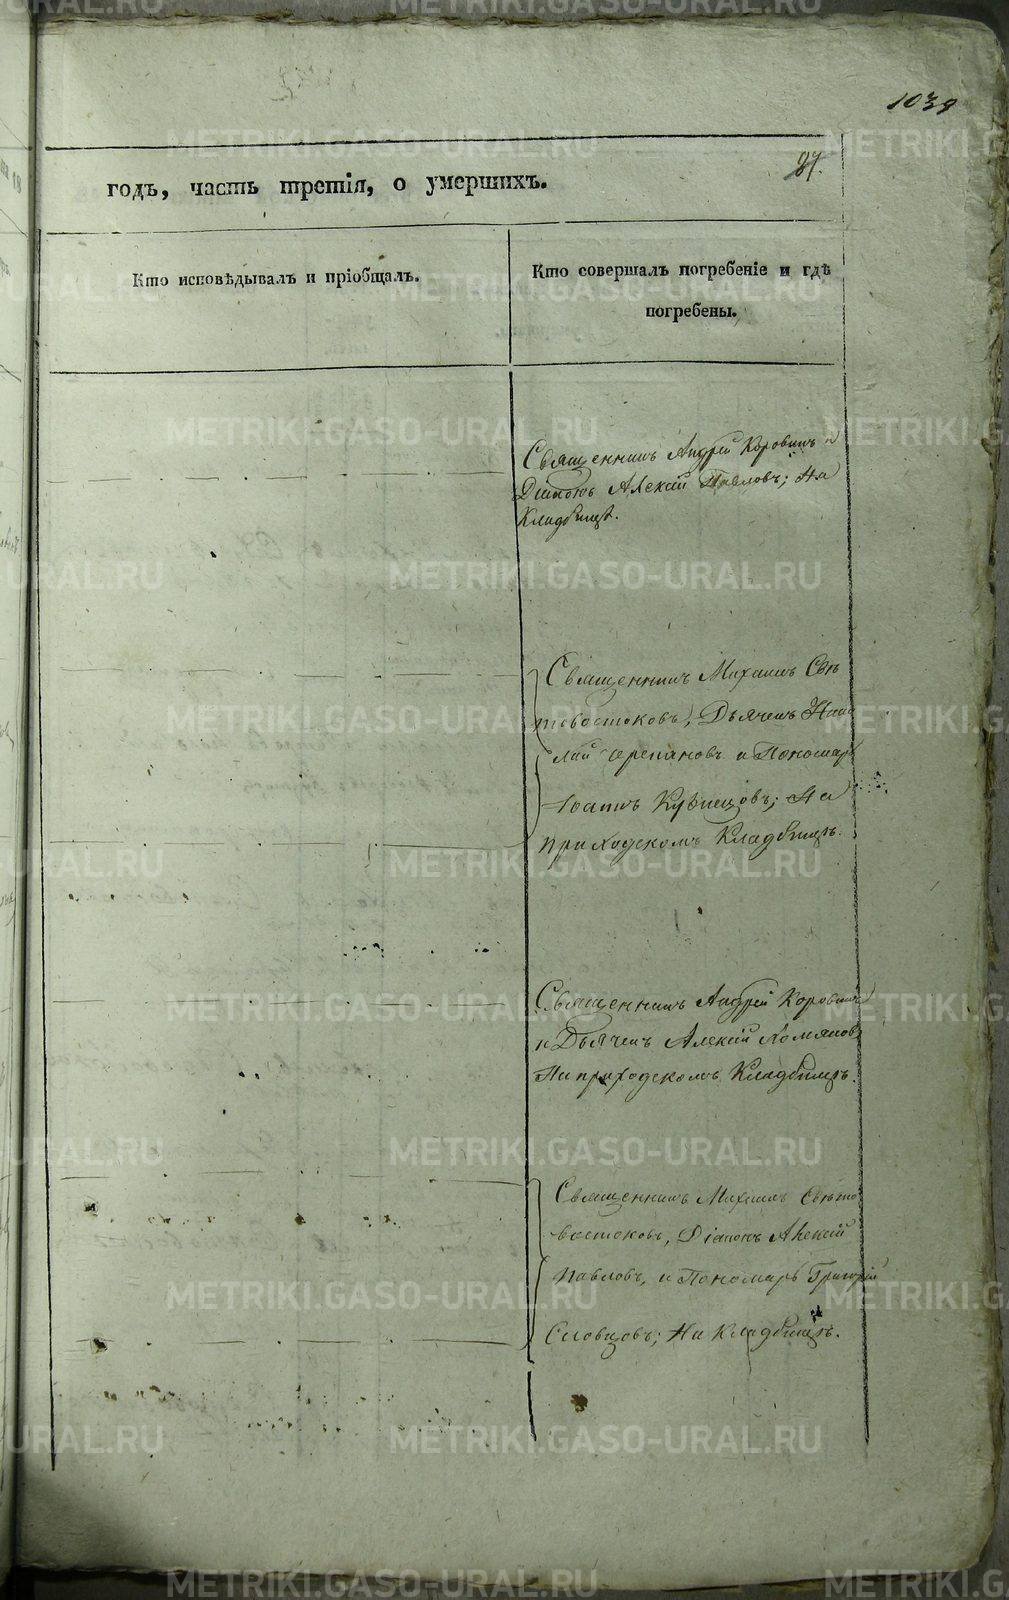 1039
87.
годъ, часть третія, о умершихъ.
Кто исповѣдывалъ и пріобщалъ.
Кто совершалъ погребеніе и гдѣ
погребены.
Священникъ Андрей Коровинъ и
Діаконъ Алексій Павловъ; На
Кладбищѣ.
Священникъ Михаилъ Свѣ
товостоковъ, Дьячекъ
Черепановъ и Пономарь
Іоаннъ Кузнецовъ; На
приходскомъ Кладбищѣ.
Священникъ Андрей Коровинъ
и Дьячекъ Алексій
На приходскомъ Кладбищѣ.
Священникъ Михаилъ Свѣто
востоковъ, Діаконъ Алексій
Павловъ, и Пономарь Григорій
Словцовъ; На Кладбищѣ.
METRIKI.GASO-URAL.RU